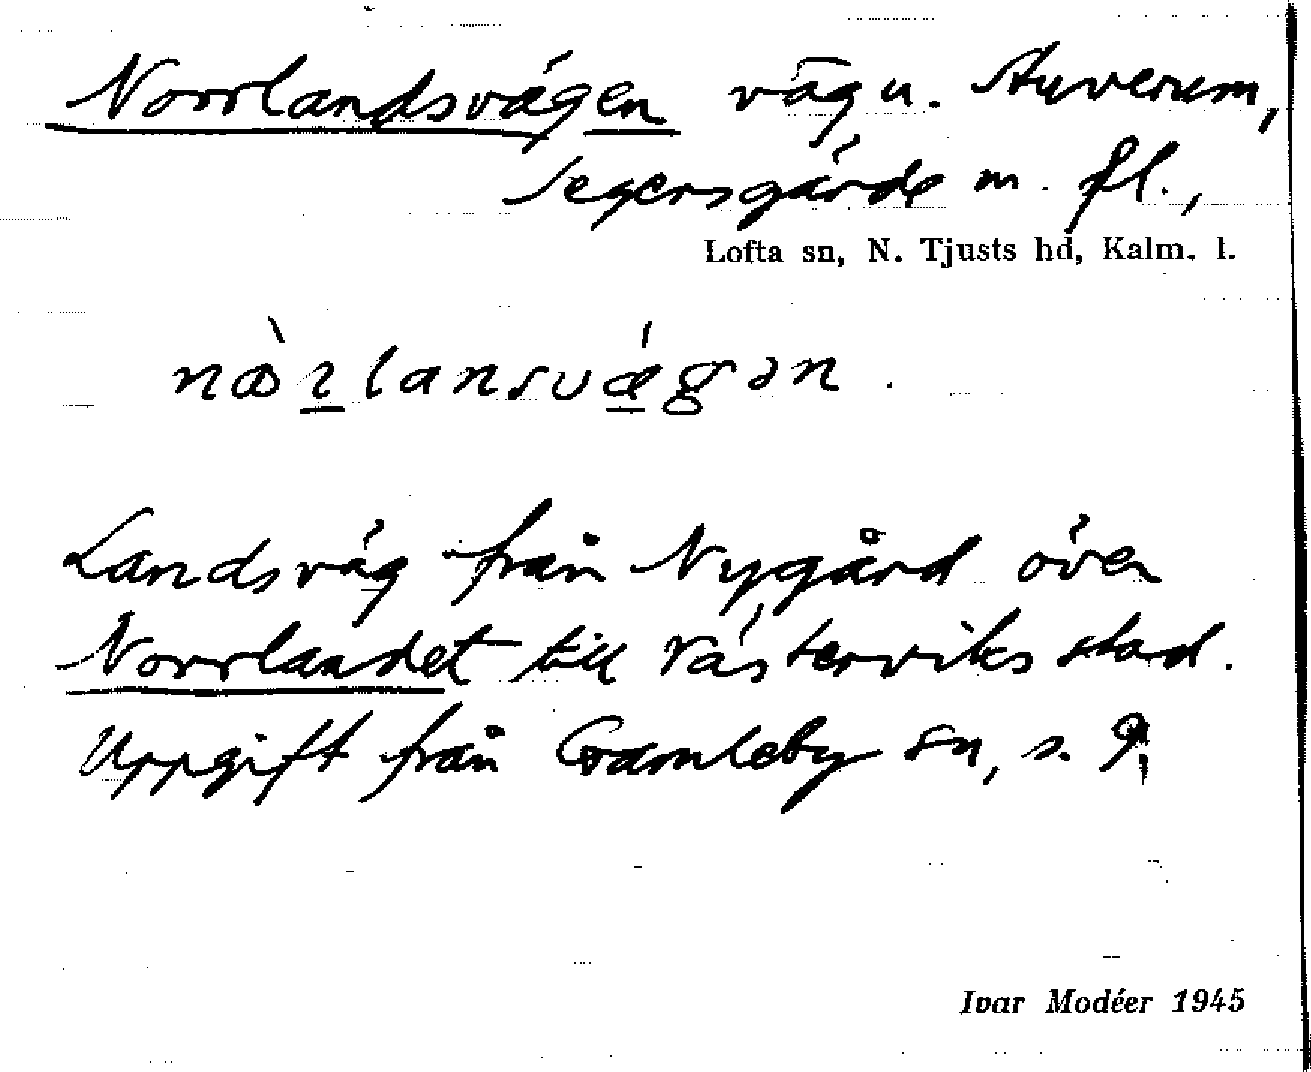 Norrlandsvägen väg u. Auverum,
Segersgärde m. fl.,
Lofta sn, N. Tjusts hd, Kalm. l.
Landsväg från Nygård över
Norrlandet till Västerviks stad.
Uppgift från Gamleby sn, s. 9.
Ivar Modéer 1945